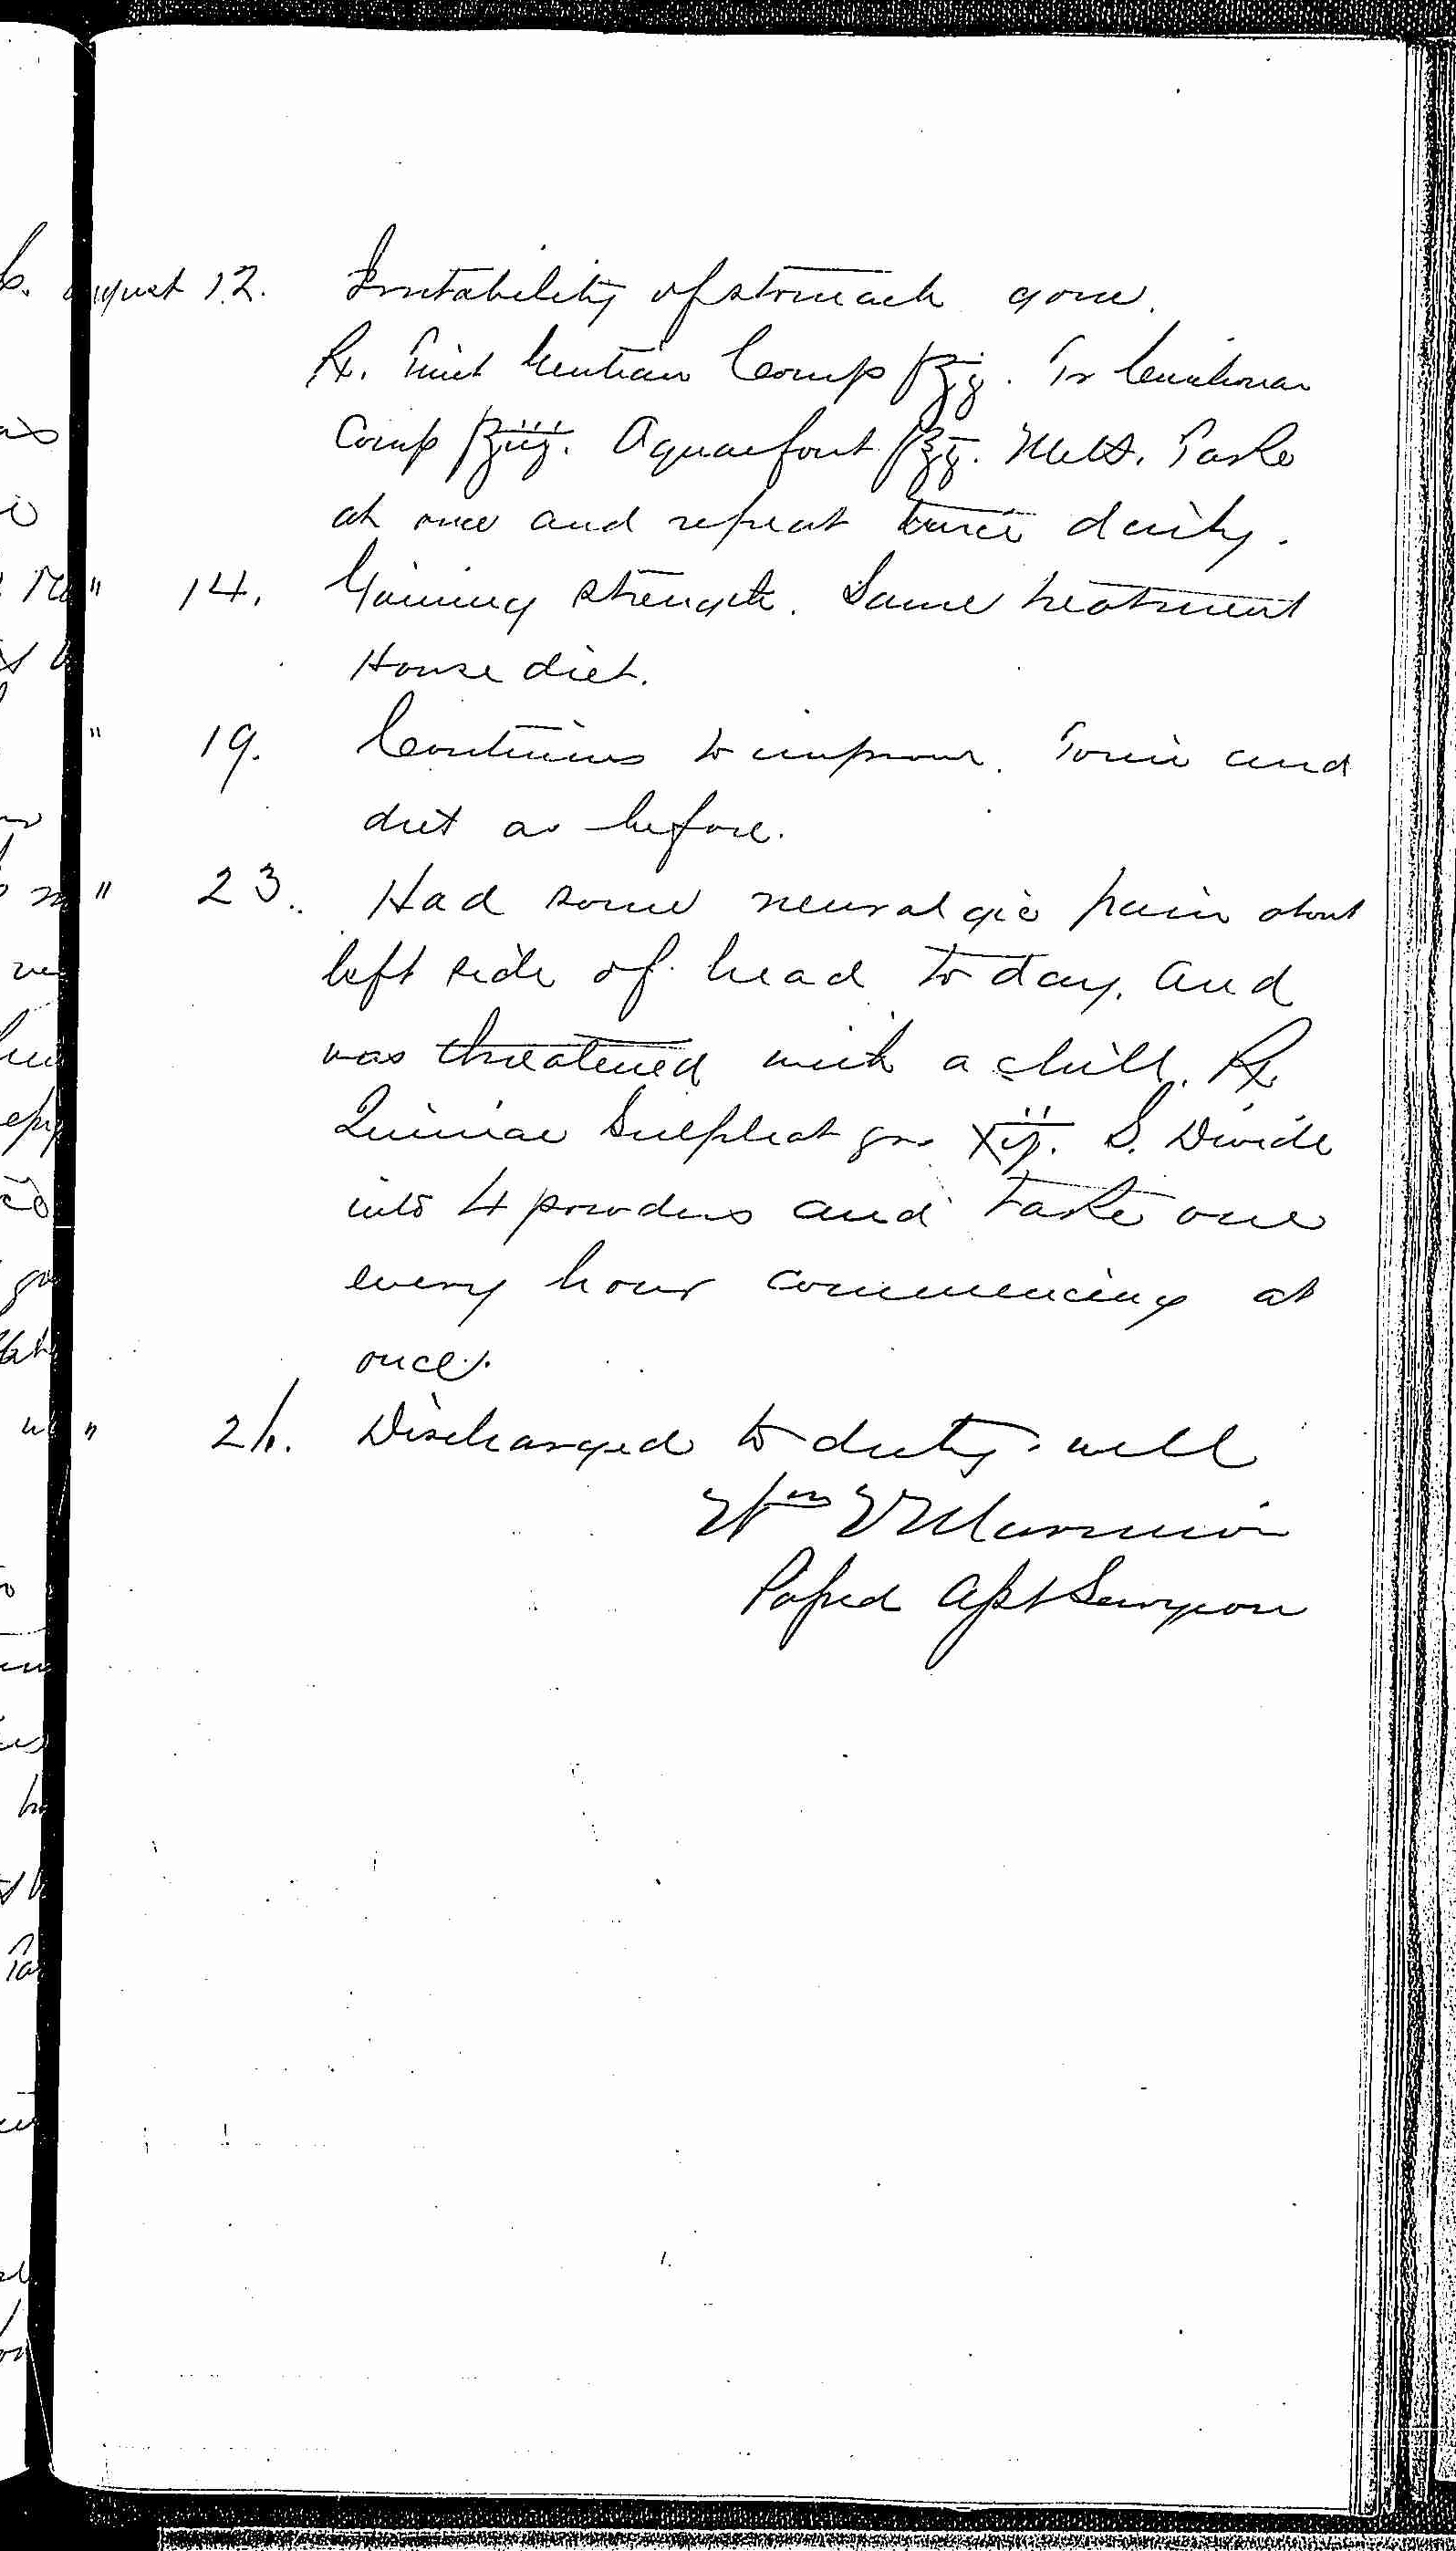 August 12. Irritability of stomach gone.
Rx. Tinct Gentian Comp f℥ij. Tr Cinchonae
Comp f℥iij. Aquae font f℥ij. Mt S. Take
at once and repeat twice daily.
" 14. Gaining strength. Same treatment
House diet.
" 19. Continues to improve. Tonic and
diet as before.
" 23. Had some neuralgic pain about
left side of head to day, and
was threatened with a chill. Rx
Quiniae Sulphat grs xij. S. Divide
into 4 powders and take one
every hour commencing at
once.
" 26. Discharged to duty. well
Wm
Passed Asst Surgeon